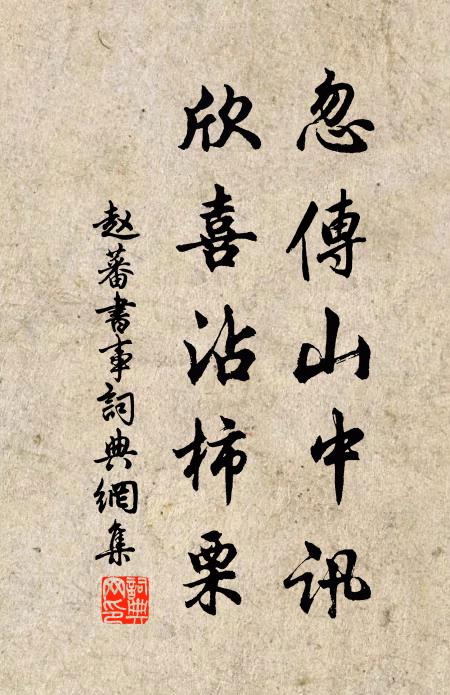 忽傳山中訊
欣喜沾柿栗
赵蕃書事詞典網集